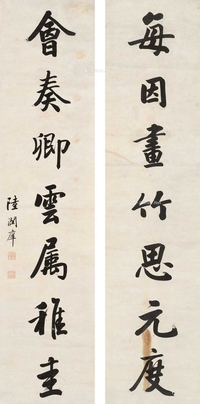 每因畫竹思元度
會奏卿雲属稚圭
陸潤庠